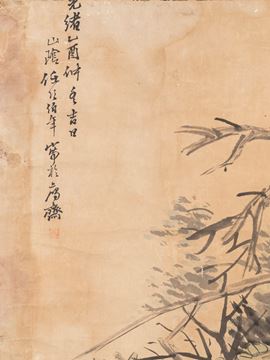 光緒乙酉仲冬吉日
山陰任伯年寫於齋